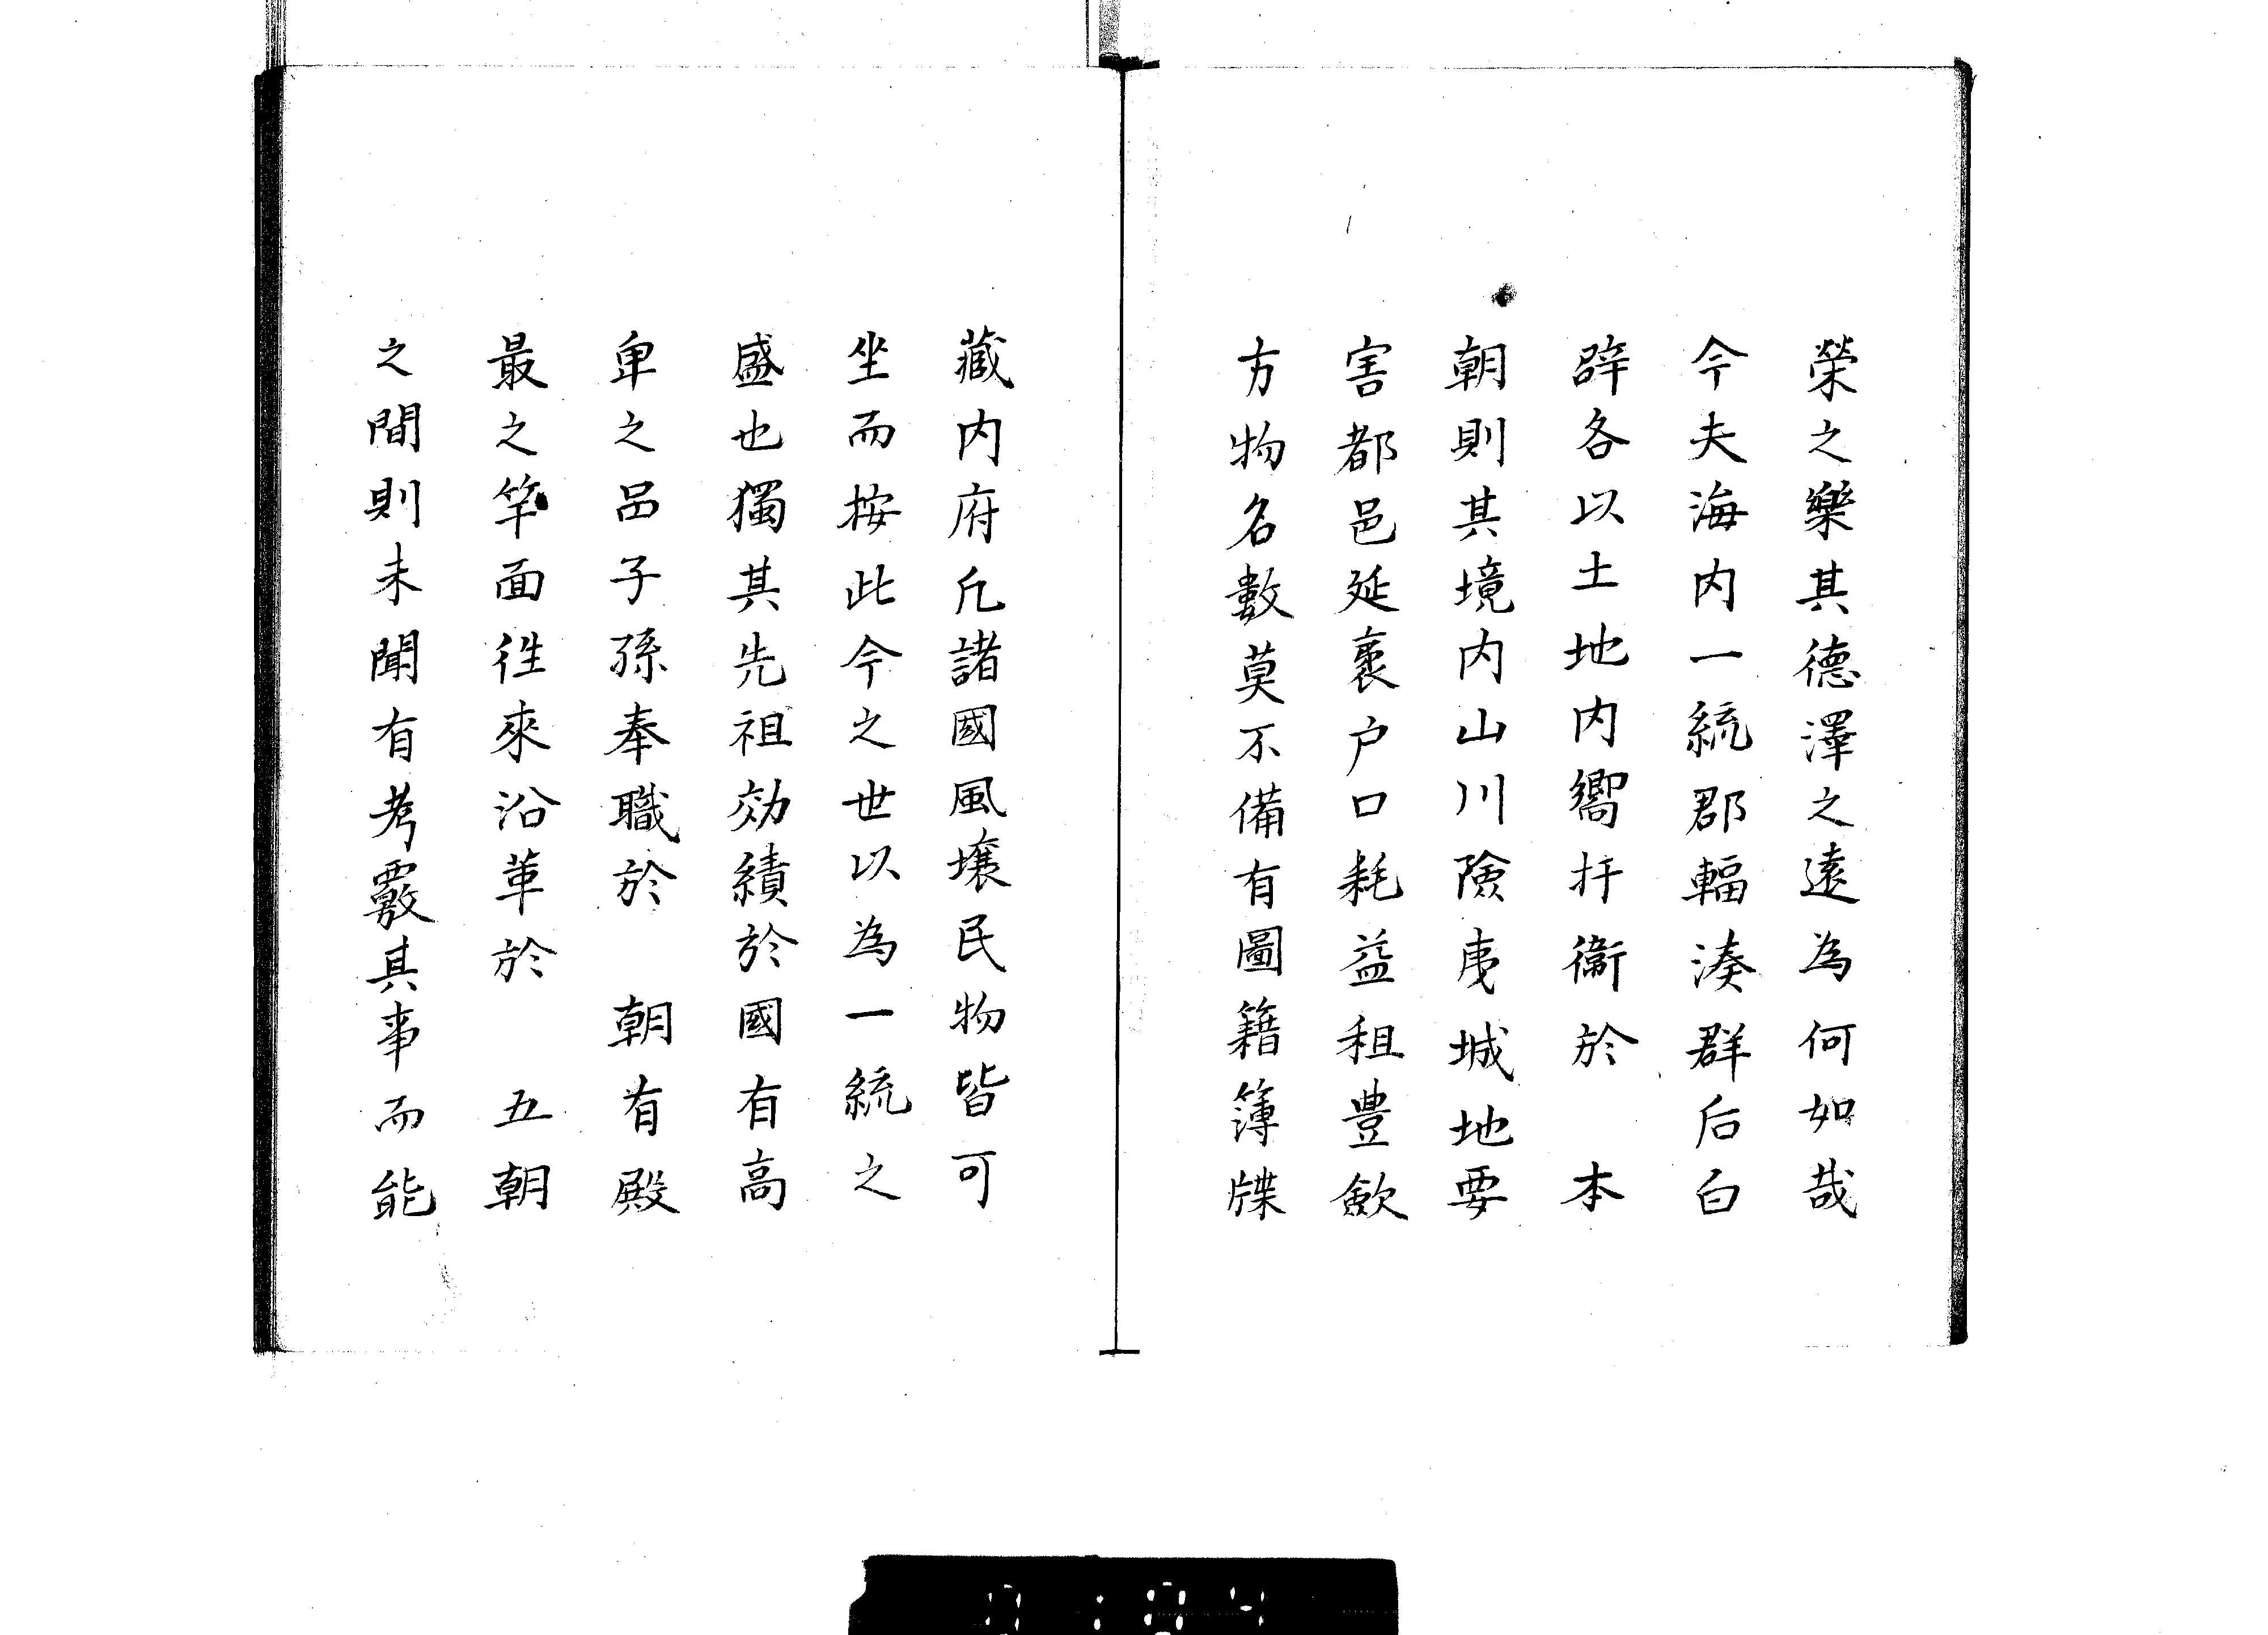 榮之樂其德澤之遠為何如哉
今夫海内一統郡輻湊群后白
辟各以土地内嚮扞衞於　本
朝則其境内山川險夷城地要
害都邑延袤户口耗益租豊歛
方物名數莫不備有圖籍簿牒
藏内府凡諸國風壤民物皆可
坐而按此今之世以為一統之
盛也獨其先祖効績於國有高
卑之品子孫奉職於　朝有殿
最之竿面徃來沿革於　五朝
之間則未聞有考覈其事而能